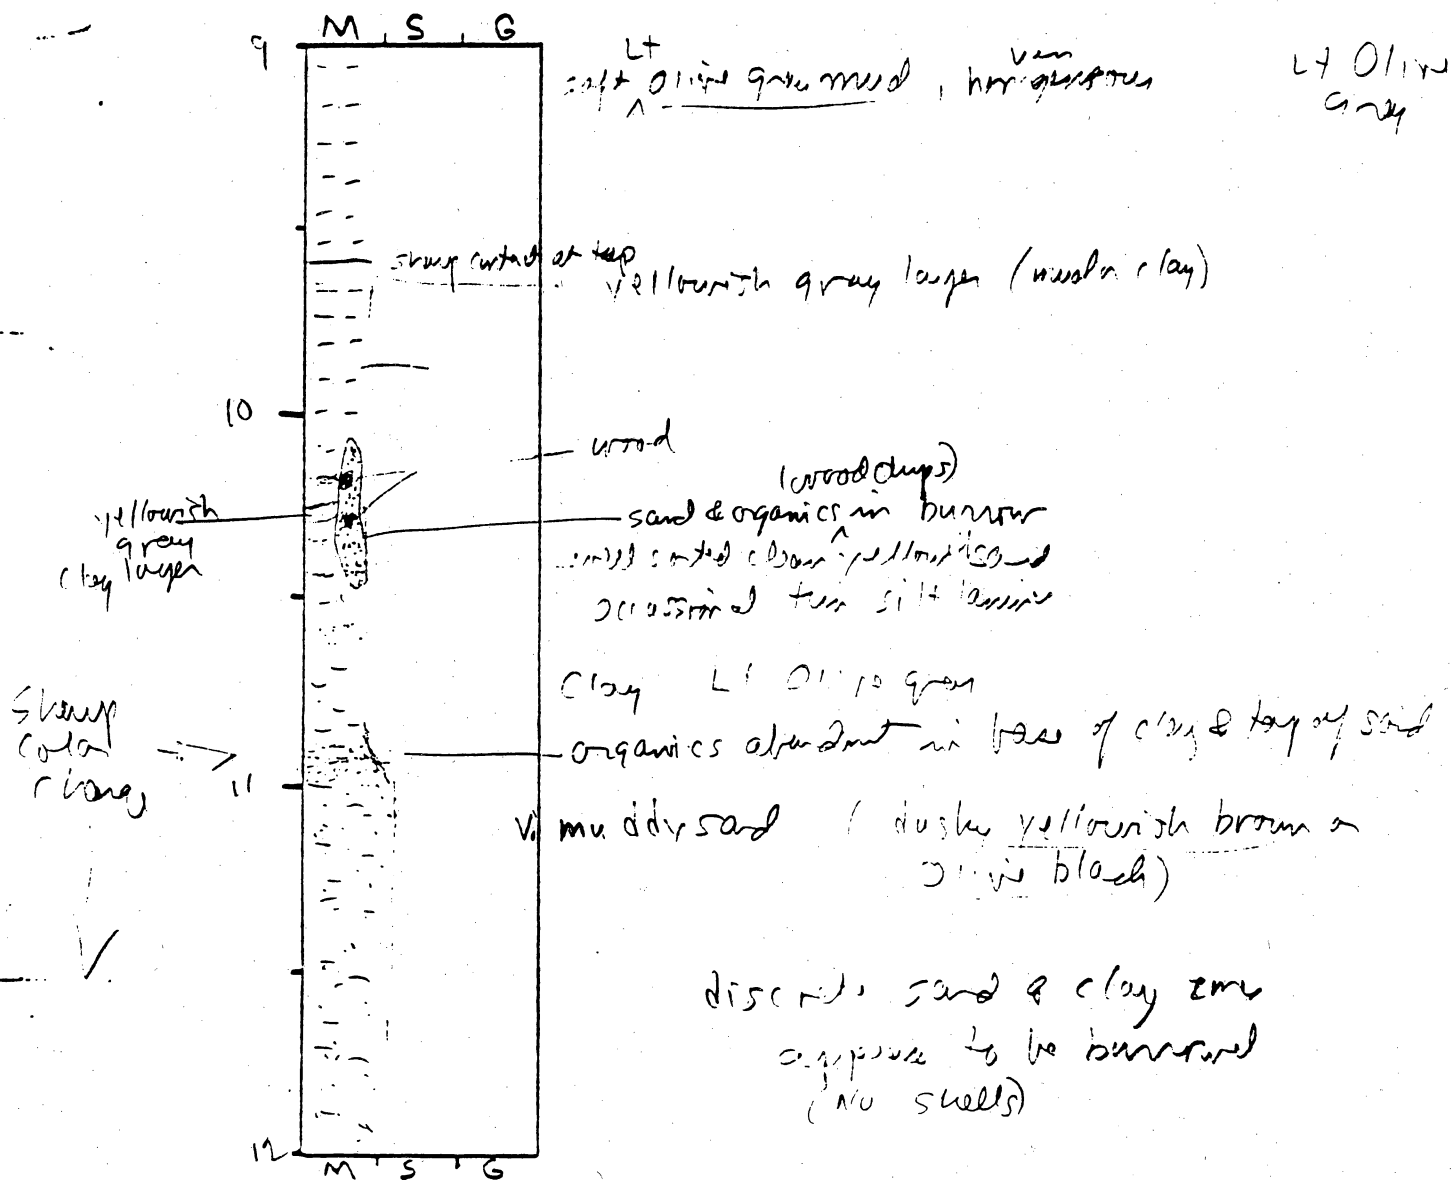 M S G
9
Lt very
soft Olive gray mud, homogeneous
Lt Olive
Gray
sharp contact at top
yellowish gray layer (mud or clay)
10
wood
(wood chips)
yellowish
gray
clay layer
sand & organics in burrow
well sorted clean yellowish sand
occassional thin silt laminae
Clay Lt Olive gray
Sharp
Color
Change
organics abundant in base of clay & top of sand
11
V. muddy sand (dusky yellowish brown or
olive black)
discrete sand & clay zones
appear to be burrowed
(No shells)
12
M S G